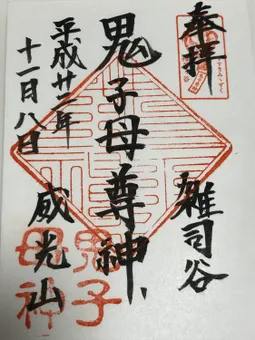 奉拝
雑司谷
鬼子母尊神
平成廿二年
十一月八日
威光山
鬼子
母神